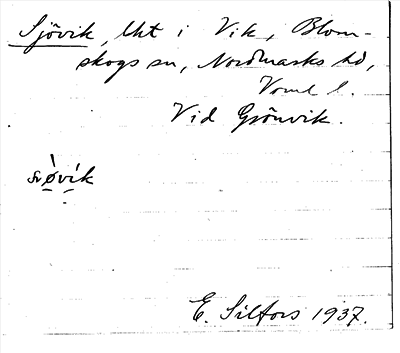 Sjövik, lht i Vik, Blom-
skogs sn, Nordmarks hd,
Vrml l.
Vid Grönvik.
søvik
E. Silfors 1937.